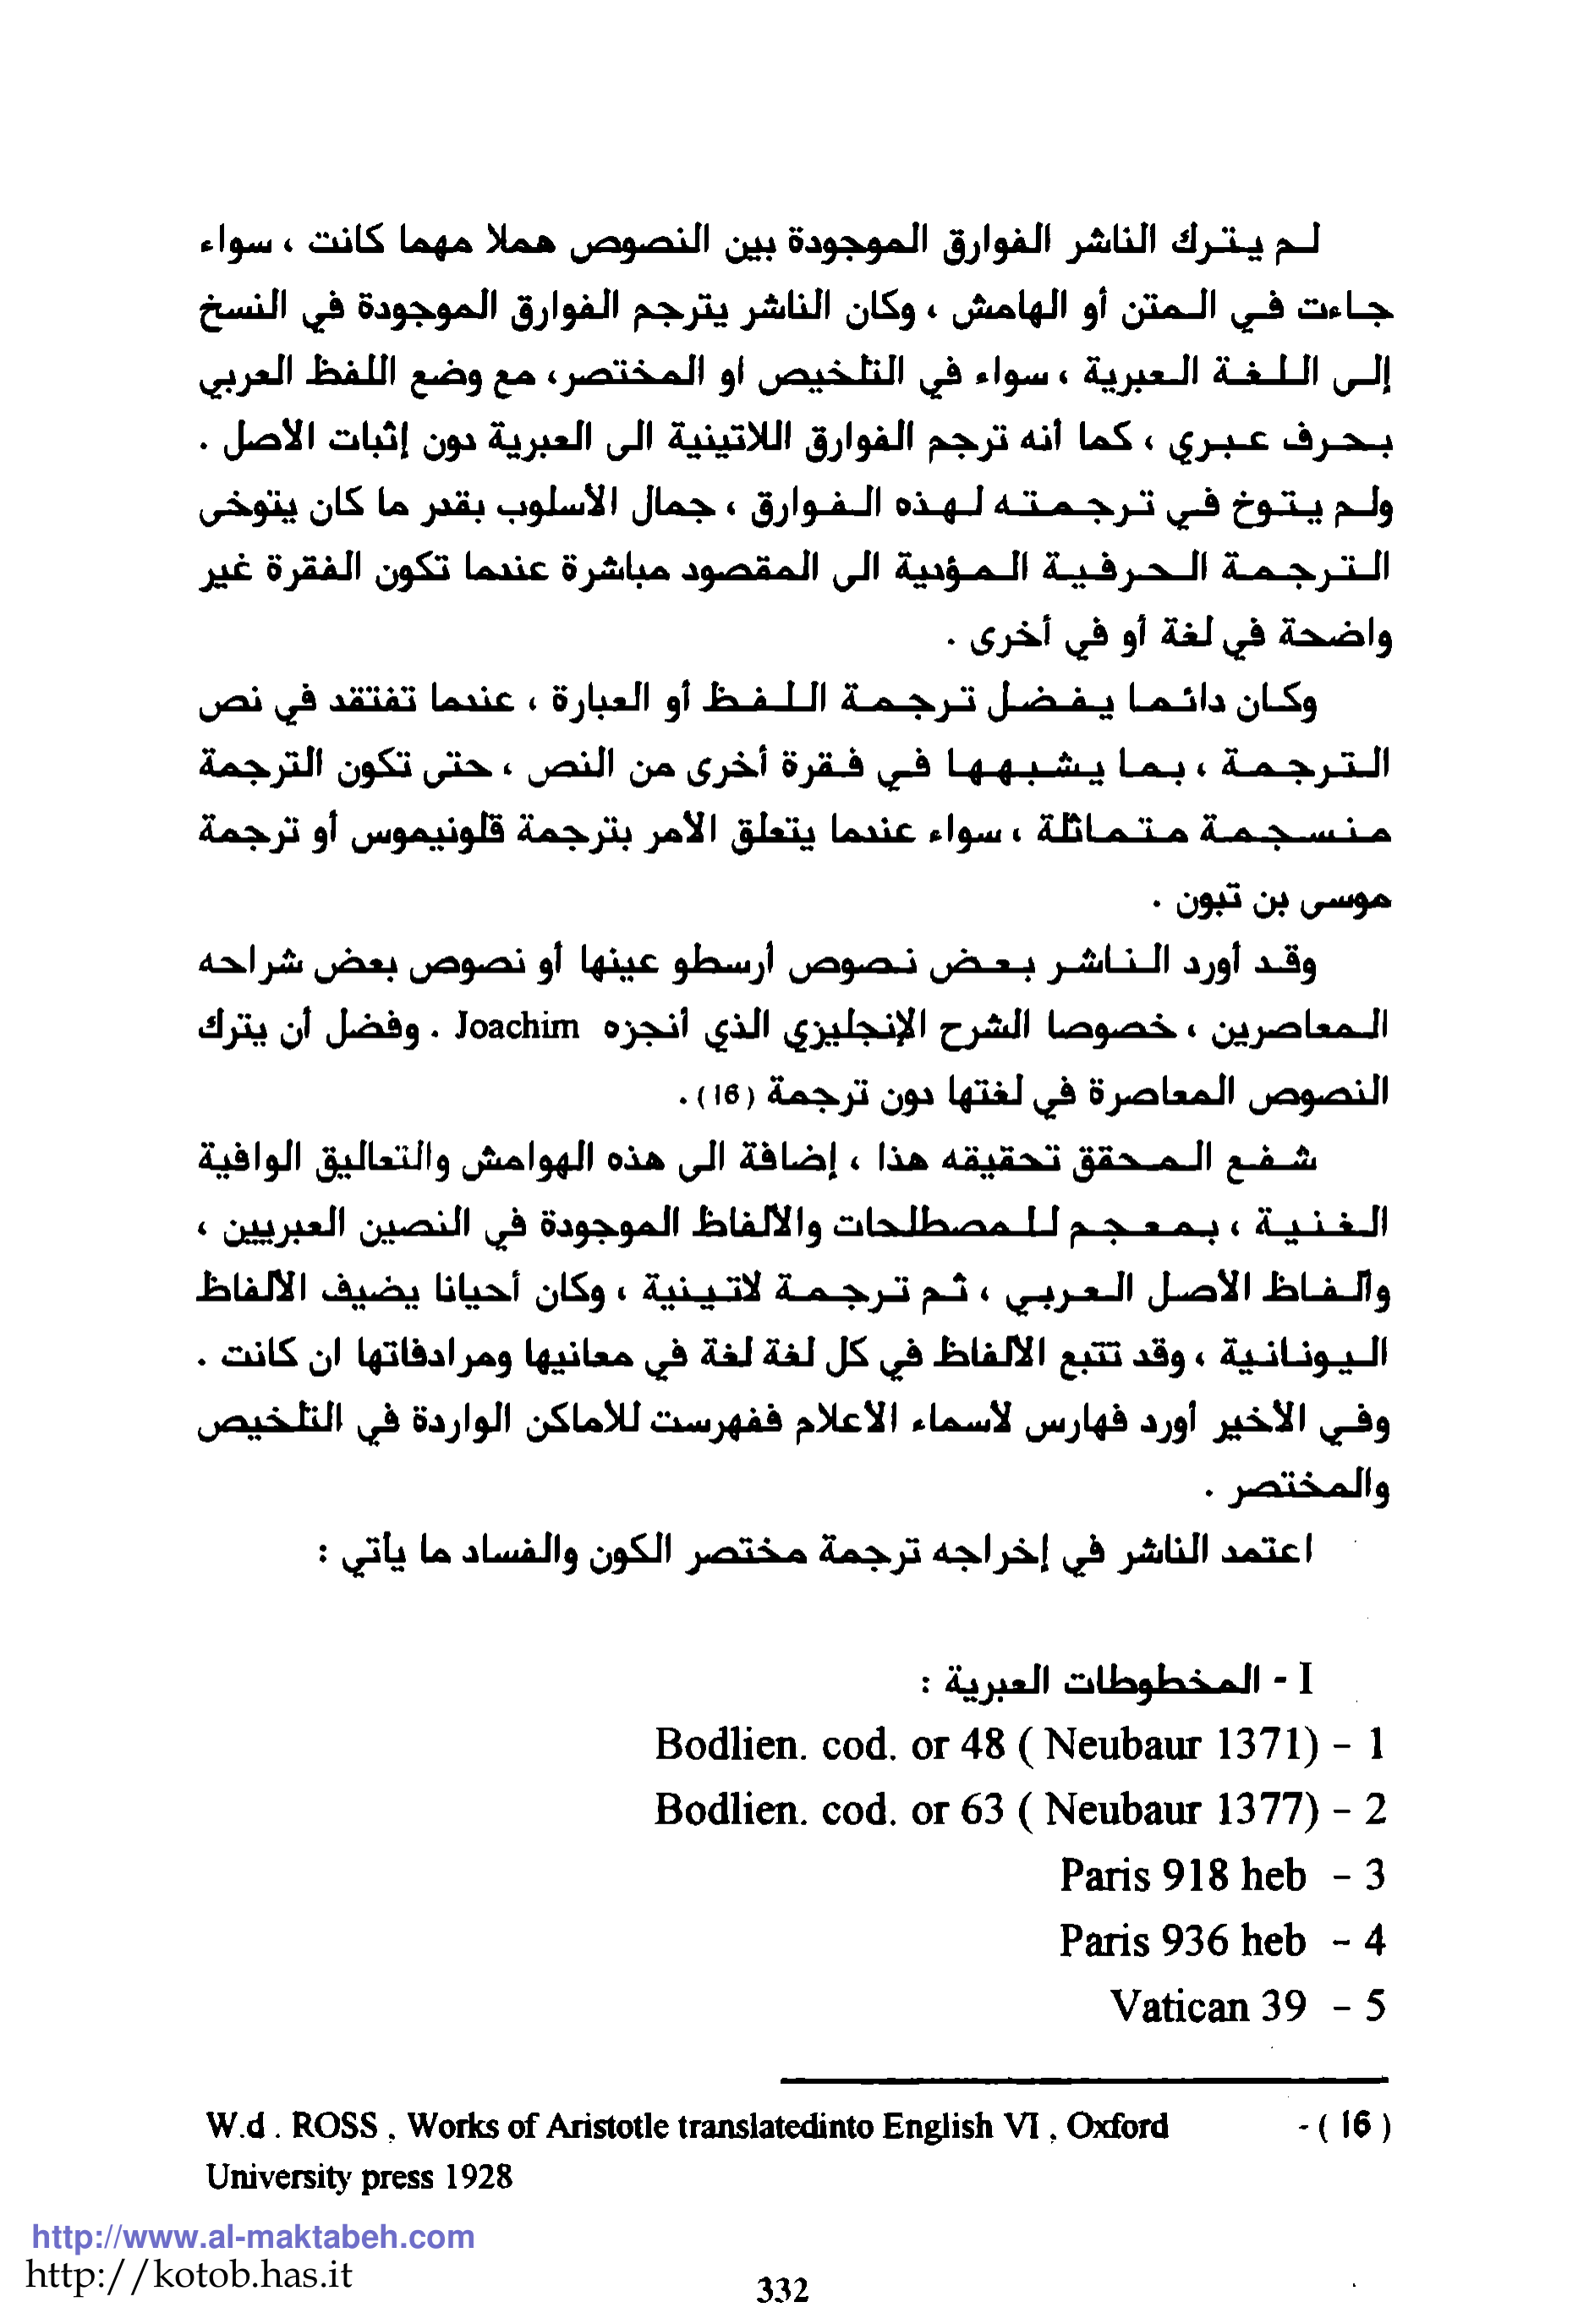 لم يترك الناشر الفوارق الموجودة بين النصوص هملا مهما كانت ، سواء
جاءت في المتن أو الهامش ، وكان الناشر يترجم الفوارق الموجودة في النسخ
إلى اللغة العبرية ، سواء في التلخيص او المختصر، مع وضع اللفظ العربي
بحرف عبري ، كما أنه ترجم الفوارق اللاتينية الى العبرية دون إثبات الأصل .
ولم يتوخ في ترجمته لهذه الفوارق ، جمال الأسلوب بقدر ما كان يتوخى
الترجمة الحرفية المؤدية الى المقصود مباشرة عندما تكون الفقرة غير
واضحة في لغة أو في أخرى .
وكان دائما يفضل ترجمة اللفظ أو العبارة ، عندما تفتقد في نص
الترجمة ، بما يشبهها في فقرة أخرى من النص ، حتى تكون الترجمة
منسجمة متماثلة ، سواء عندما يتعلق الأمر بترجمة قلونيموس أو ترجمة
موسى بن تبون .
وقد أورد الناشر بعض نصوص أرسطو عينها أو نصوص بعض شراحه
المعاصرين ، خصوصا الشرح الإنجليزي الذي أنجزه Joachim . وفضل أن يترك
النصوص المعاصرة في لغتها دون ترجمة (16) .
شفع المحقق تحقيقه هذا ، إضافة الى هذه الهوامش والتعاليق الوافية
الغنية ، بمعجم للمصطلحات والألفاظ الموجودة في النصين العبريين ،
وألفاظ الأصل العربي ، ثم ترجمة لاتينية ، وكان أحيانا يضيف الألفاظ
اليونانية ، وقد تتبع الألفاظ في كل لغة لغة في معانيها ومرادفاتها ان كانت .
وفي الأخير أورد فهارس لأسماء الأعلام ففهرست للأماكن الواردة في التلخيص
والمختصر .
اعتمد الناشر في إخراجه ترجمة مختصر الكون والفساد ما يأتي :
I - المخطوطات العبرية :
1 - Bodlien. cod. or 48 ( Neubaur 1371)
2 - Bodlien. cod. or 63 ( Neubaur 1377)
3 - Paris 918 heb
4 - Paris 936 heb
5 - Vatican 39
(16) - W.d . ROSS . Works of Aristotle translatedinto English VI . Oxford
University press 1928
http://www.al-maktabeh.com
http://kotob.has.it
332